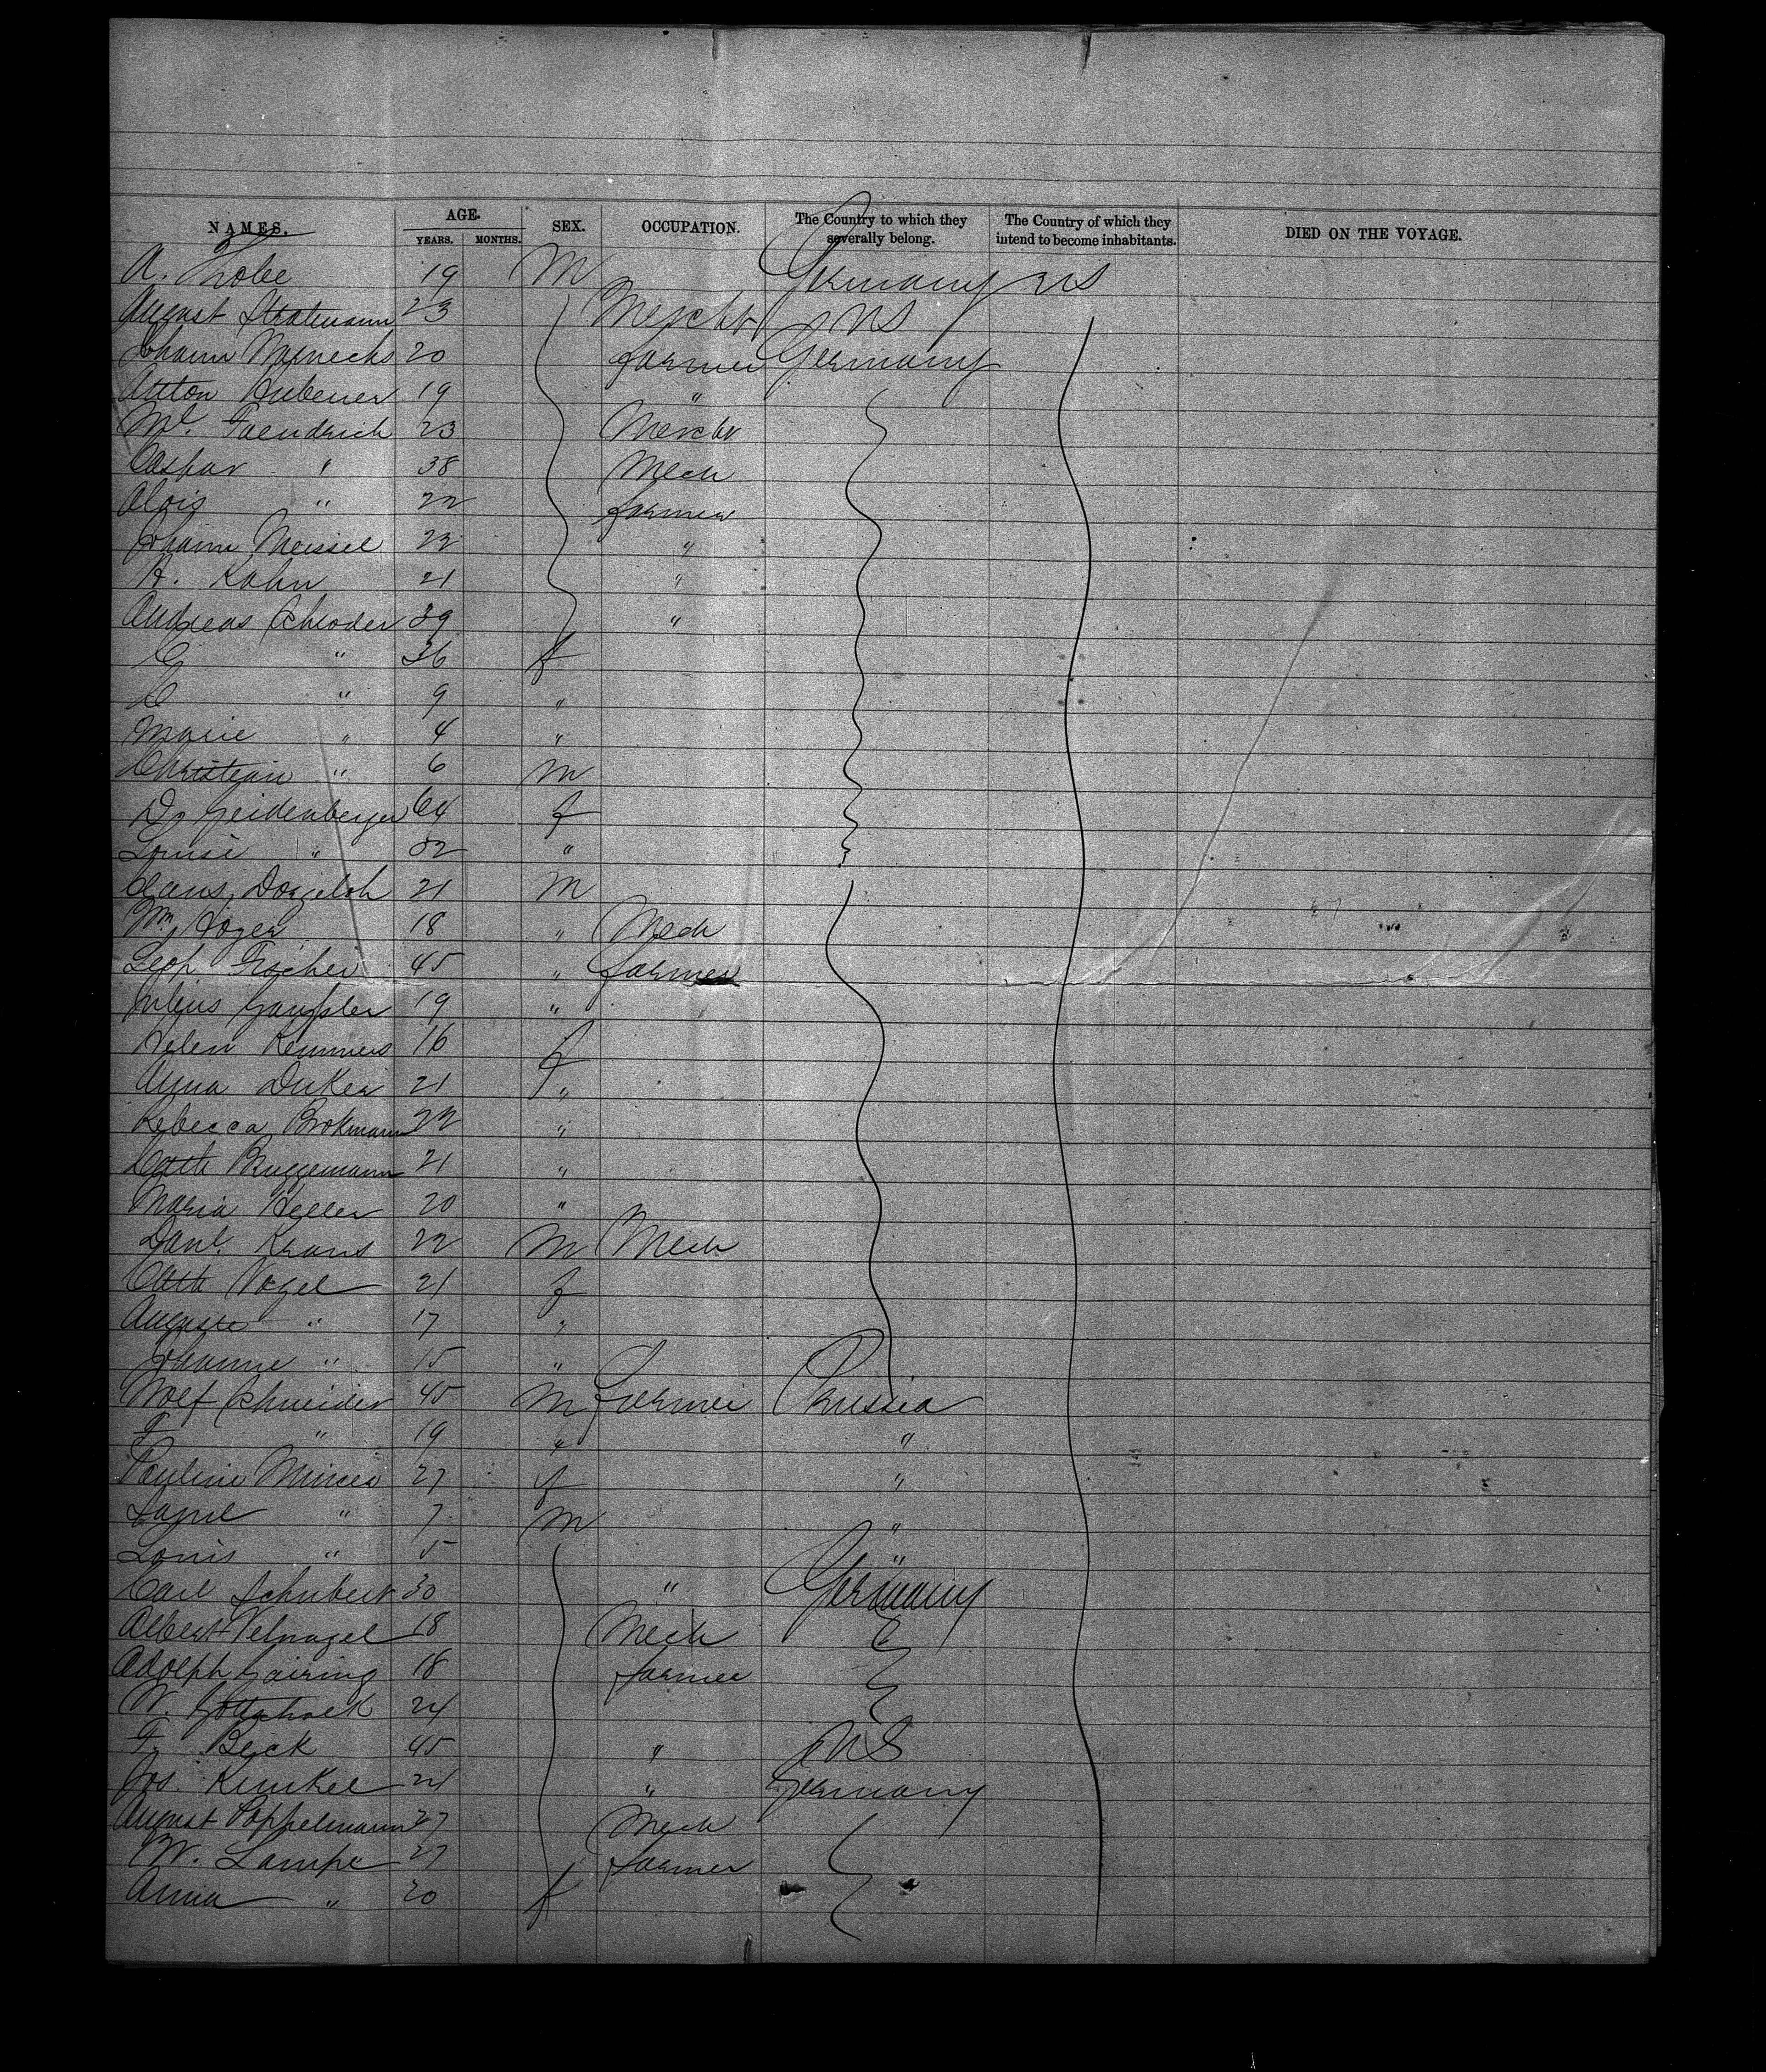 NAMES. AGE. YEARS. MONTHS. SEX. OCCUPATION. The Country to which they severally belong. The Country of which they intend to become inhabitants. DIED ON THE VOYAGE.
A. 19 M Germany US
August 23 Mercht US
Johann 20 farmer Germany
Anton Hubener 19 "
Ml. Faendrich 23 Mercht
Caspar " 38 Mech
Alois " 22 farmer
Johann Meissel 22 "
A. Kahn 21 "
Andreas Schroder 39 "
C " 36 f
C " 9 "
Marie " 4 "
Christian " 6 M
D. Geidenberger 64 f
Louise " 32 "
Claus Dorgeloh 21 M
Wm. 18 " Mech
Leop Fischer 45 " farmer
Julius 19 "
Helen Remmers 16 f
Anna 21 "
Rebecca Brokmann 22 "
Cath Bruggemann 21 "
Maria Heller 20 "
Danl. Kraus 22 M Mech
Cath Vogel 21 f
Auguste " 17 "
Johanne " 15 "
Wolf Schneider 45 M farmer Russia
F " 19 " "
Pauline 27 f "
" 7 M "
Louis " 5 "
Carl Schubert 30 " Germany
Albert Velnagel 18 Mech
Adolph Gairing 18 farmer
W. 24
F. Beck 45 " US
Jos. Kunkel 24 " Germany
August Poppelmann 27 Mech
W. Lampe 27 farmer
Anna " 20 f